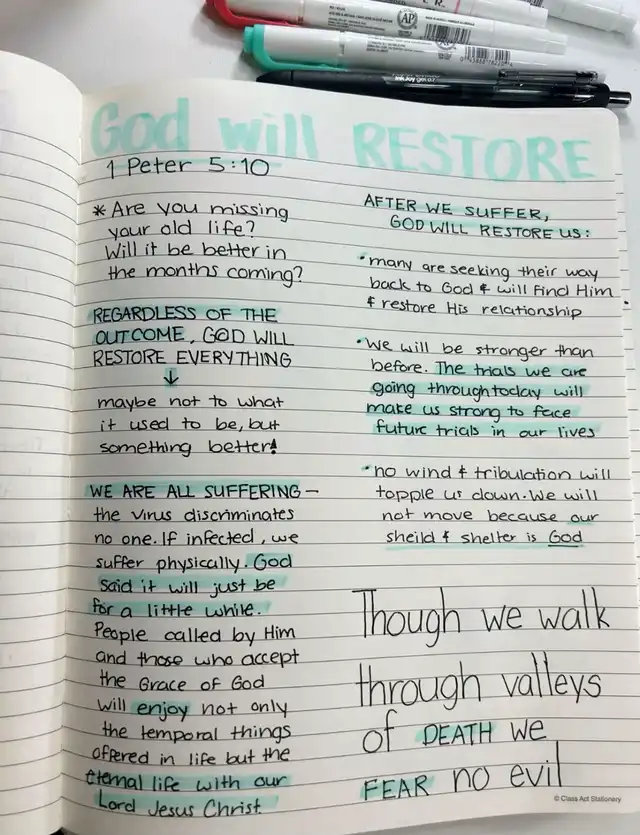 God will RESTORE
1 Peter 5:10
* Are you missing
your old life?
Will it be better in
the months coming?
REGARDLESS OF THE
OUTCOME, GOD WILL
RESTORE EVERYTHING
↓
maybe not to what
it used to be, but
something better!
WE ARE ALL SUFFERING —
the virus discriminates
no one. If infected, we
suffer physically. God
said it will just be
for a little while.
People called by Him
and those who accept
the Grace of God
will enjoy not only
the temporal things
offered in life but the
eternal life with our
Lord Jesus Christ.
AFTER WE SUFFER,
GOD WILL RESTORE US:
• many are seeking their way
back to God & will find Him
& restore His relationship
• We will be stronger than
before. The trials we are
going through today will
make us strong to face
future trials in our lives
• no wind & tribulation will
topple us down. We will
not move because our
sheild & shelter is God
Though we walk
through valleys
of DEATH we
FEAR no evil
© Class Act Stationery